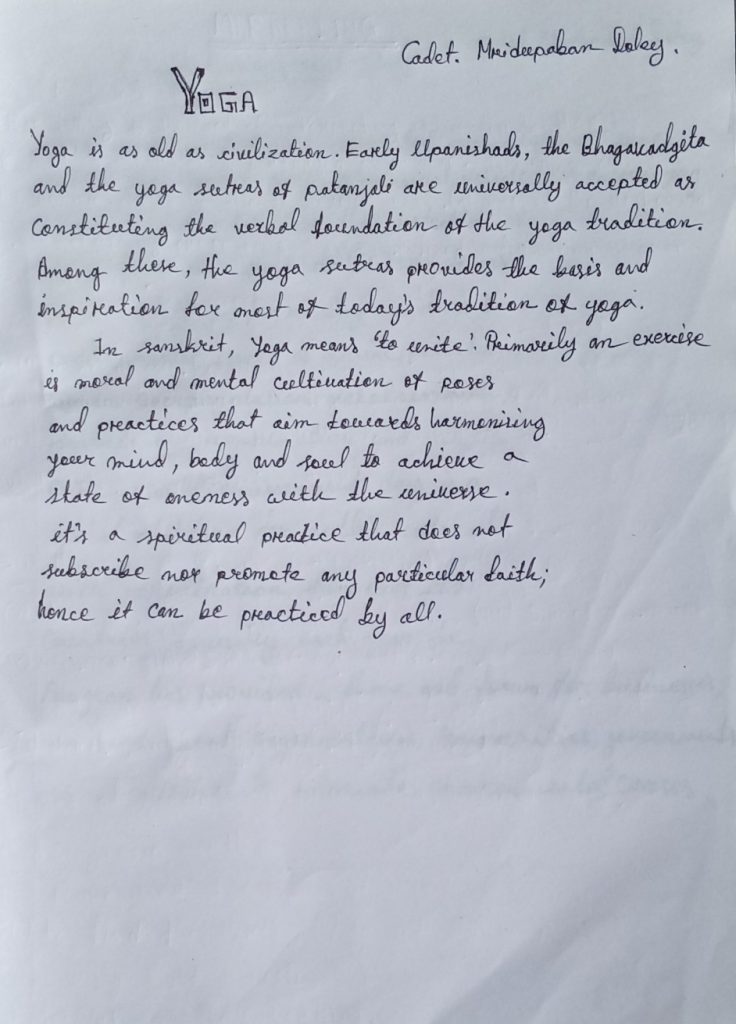 Cadet. Mridupaban Doley.
YOGA
Yoga is as old as civilization. Early Upanishads, the Bhagavadgita
and the yoga sutras of patanjali are universally accepted as
Constituting the verbal foundation of the yoga tradition.
Among these, the yoga sutras provides the basis and
inspiration for most of today's tradition of yoga.
In sanskrit, Yoga means 'to unite'. Primarily an exercise
is moral and mental cultivation of poses
and practices that aim towards harmonizing
your mind, body and soul to achieve a
state of oneness with the universe.
it's a spiritual practice that does not
subscribe nor promote any particular faith;
hence it can be practiced by all.